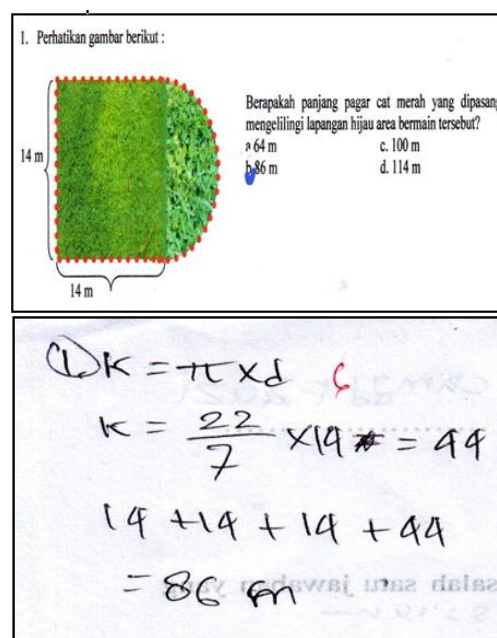 1. Perhatikan gambar berikut :
14 m
14 m
Berapakah panjang pagar cat merah yang dipasang
mengelilingi lapangan hijau area bermain tersebut?
a 64 m c. 100 m
b 86 m d. 114 m
① K = π x d
K = 22/7 x 14 = 44
14 + 14 + 14 + 44
= 86 m
salah satu jawaban yang